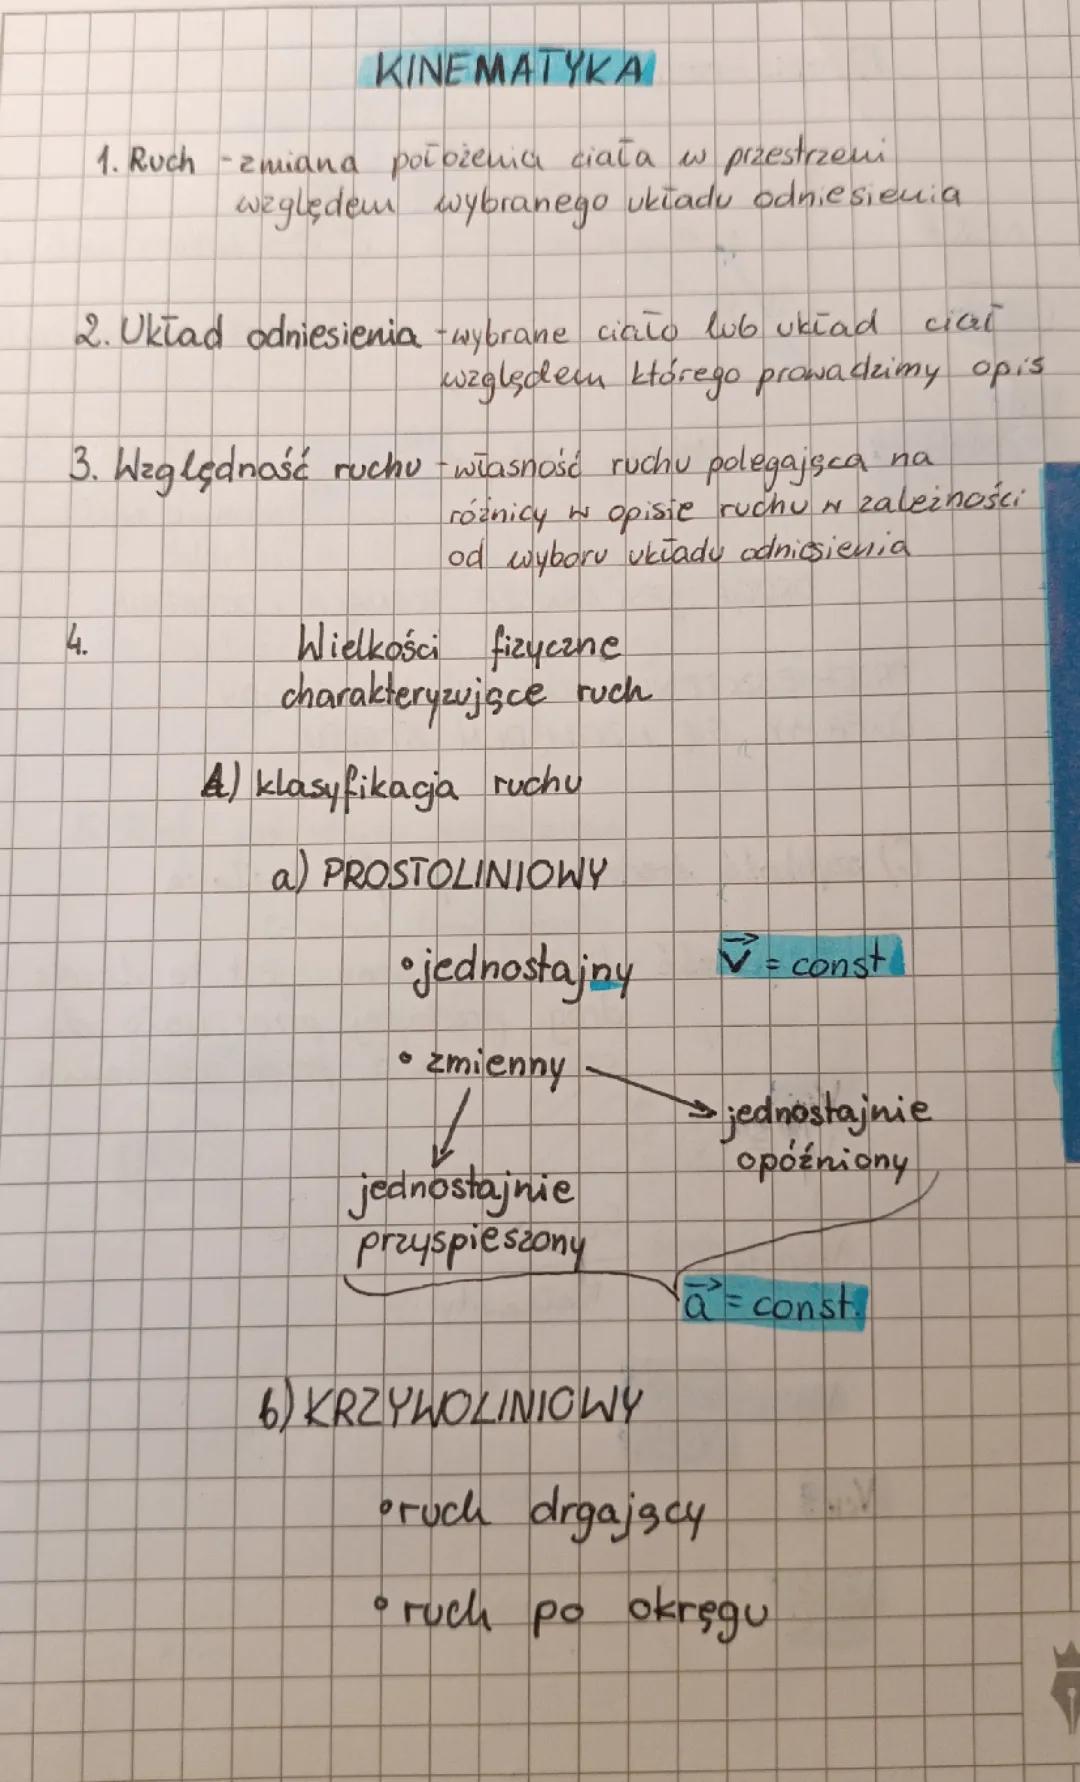 KINEMATYKA
1. Ruch - zmiana położenia ciała w przestrzeni
względem wybranego układu odniesienia
2. Układ odniesienia - wybrane ciało lub układ ciał
względem którego prowadzimy opis
3. Względność ruchu - własność ruchu polegająca na
różnicy w opisie ruchu w zależności
od wyboru układu odniesienia
4. Wielkości fizyczne
charakteryzujące ruch
A) klasyfikacja ruchu
a) PROSTOLINIOWY
• jednostajny v⃗ = const
• zmienny
jednostajnie
opóźniony
jednostajnie
przyspieszony
a⃗ = const.
b) KRZYWOLINIOWY
• ruch drgający
• ruch po okręgu